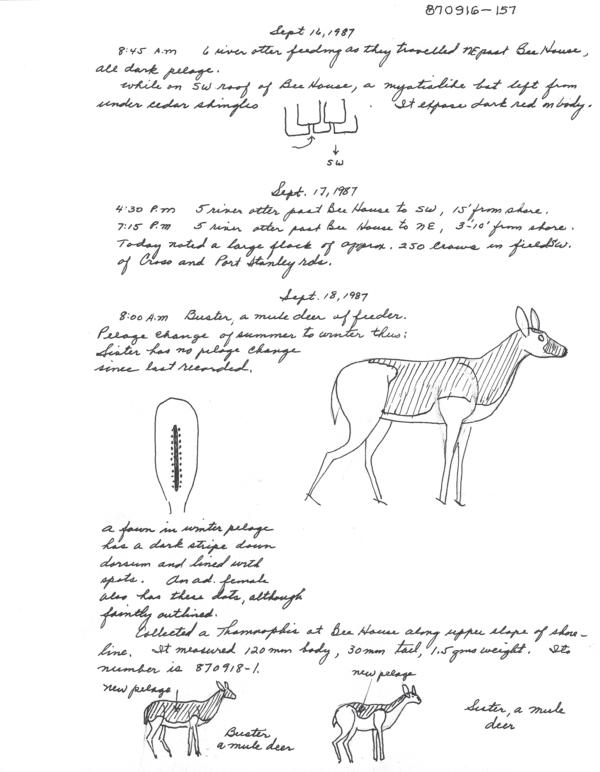 870916-157
Sept 16, 1987
8:45 A.M 6 river otter feeding as they travelled NE past Bee House,
all dark pelage.
While on SW roof of Bee House, a myotislike bat left from
under cedar shingles . It expose dark red on body.
SW
Sept. 17, 1987
4:30 P.M 5 river otter past Bee House to SW, 15' from shore.
7:15 P.M 5 river otter past Bee House to NE, 3-10' from shore.
Today noted a large flock of approx. 250 crows in field SW.
of Cross and Port Stanley rds.
Sept. 18, 1987
8:00 A.M Buster, a mule deer at feeder.
Pelage change of summer to winter thus:
Sister has no pelage change
since last recorded.
a fawn in winter pelage
has a dark stripe down
dorsum and lined with
spots. An ad. female
also has these dots, although
faintly outlined.
Collected a Thamnophis at Bee House along upper slope of shore-
line. It measured 120 mm body, 30 mm tail, 1.5 gms weight. Its
number is 870918-1.
new pelage
new pelage
Buster
a mule deer
Sister, a mule
deer